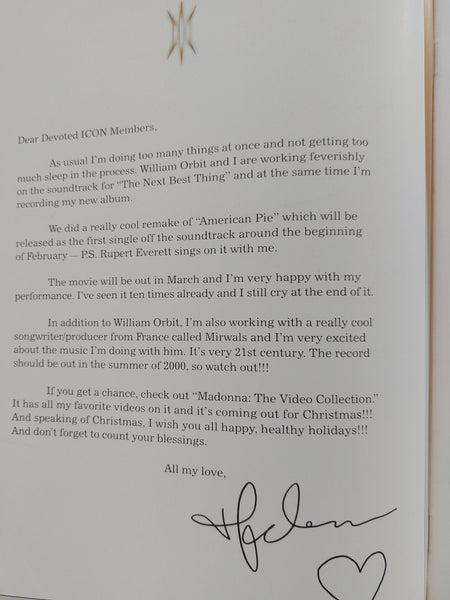 Dear Devoted ICON Members,
As usual I'm doing too many things at once and not getting too
much sleep in the process. William Orbit and I are working feverishly
on the soundtrack for "The Next Best Thing" and at the same time I'm
recording my new album.
We did a really cool remake of "American Pie" which will be
released as the first single off the soundtrack around the beginning
of February – P.S. Rupert Everett sings on it with me.
The movie will be out in March and I'm very happy with my
performance. I've seen it ten times already and I still cry at the end of it.
In addition to William Orbit, I'm also working with a really cool
songwriter/producer from France called Mirwals and I'm very excited
about the music I'm doing with him. It's very 21st century. The record
should be out in the summer of 2000, so watch out!!!
If you get a chance, check out "Madonna: The Video Collection."
It has all my favorite videos on it and it's coming out for Christmas!!!
And speaking of Christmas, I wish you all happy, healthy holidays!!!
And don't forget to count your blessings.
All my love,